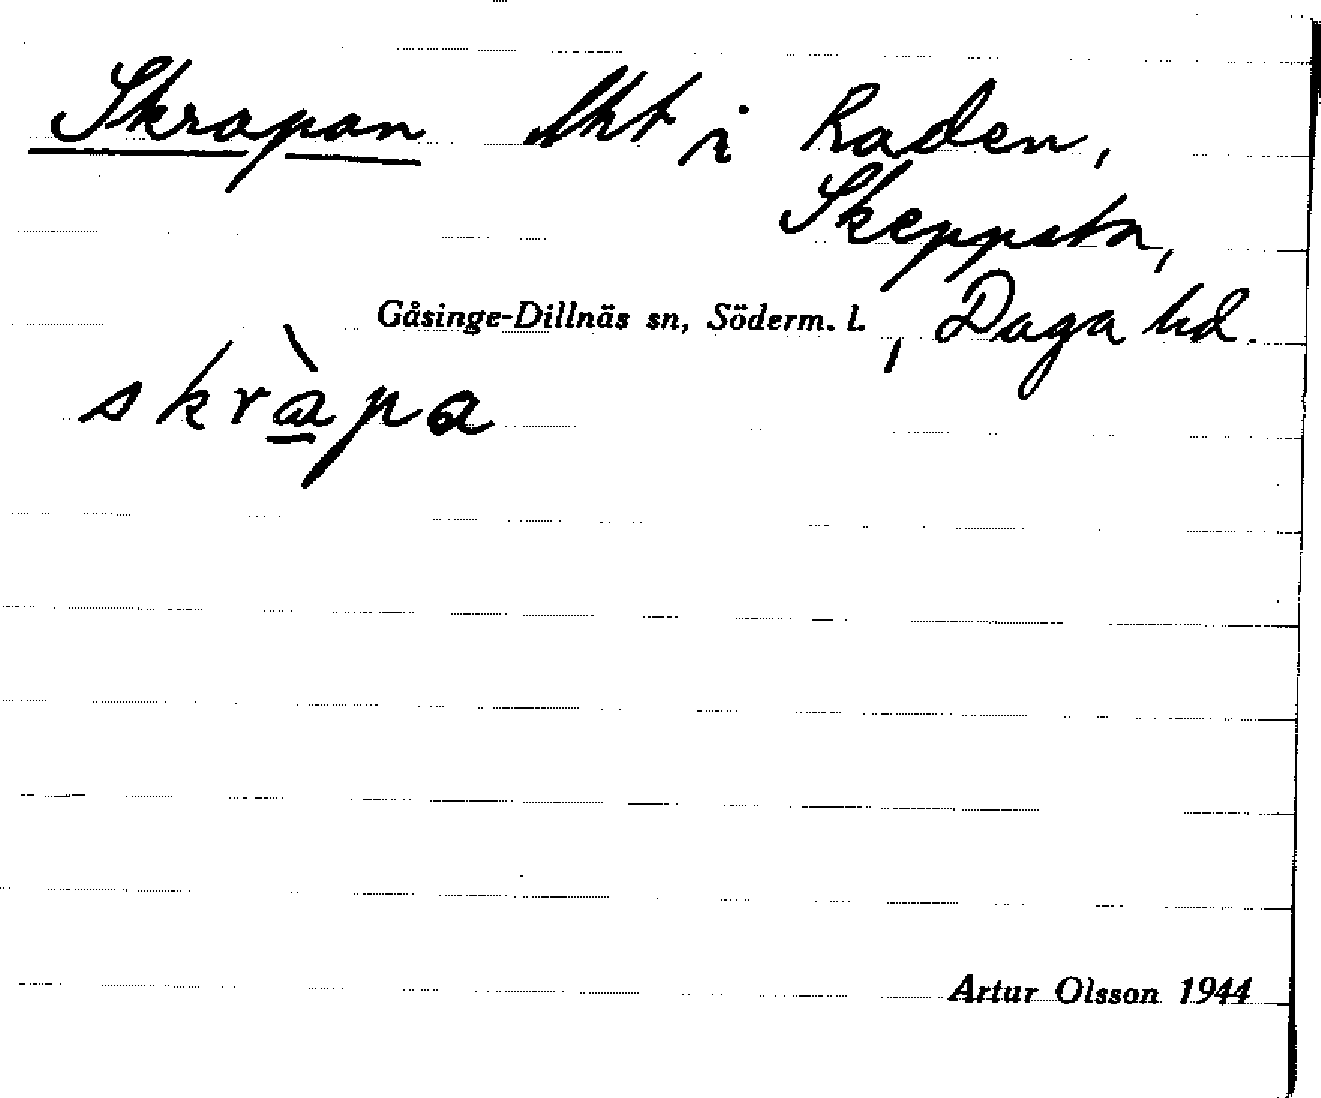 Skrapan lht i Raden,
Skeppsta,
Gåsinge-Dillnäs sn, Söderm. l., Daga hd.
skràpa
Artur Olsson 1944